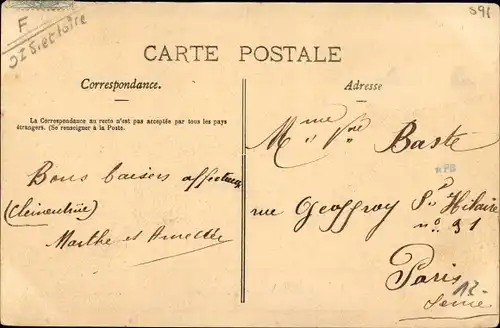 591
F
37 I et Loire
CARTE POSTALE
Correspondance.
Adresse
La Correspondance au recto n'est pas acceptée par tous les pays
étrangers. (Se renseigner à la Poste.
Mme Vve Baste
Bons baisers affectueux
*PB
(Clémentine)
rue Geoffroy St Hilaire
no 31
Marthe et
Paris
12
Seine